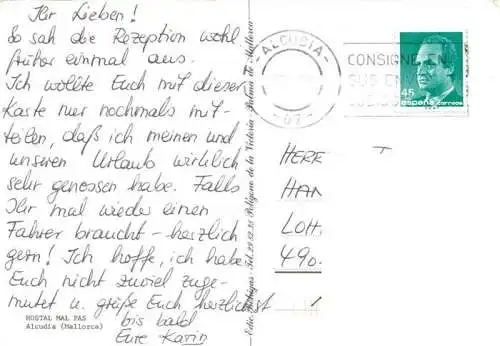 Ihr Lieben!
So sah die Rezeption wohl
früher einmal aus.
Ich wollte Euch mit dieser
Karte nur nochmals mit-
teilen, daß ich meinen und
unseren Urlaub wirklich
sehr genossen habe. Falls
Ihr mal wieder einen
Fahrer braucht - herzlich
gern! Ich hoffe, ich habe
Euch nicht zuviel zuge-
mutet u. grüße Euch herzlichst
bis bald
Eure Karin
HOSTAL MAL PAS
Alcudia (Mallorca)
Palma de Mallorca
ALCUDIA
-07-
CONSIGNE EN
SUS EN
45
españa correos
HERR
HAN
LOTH
490